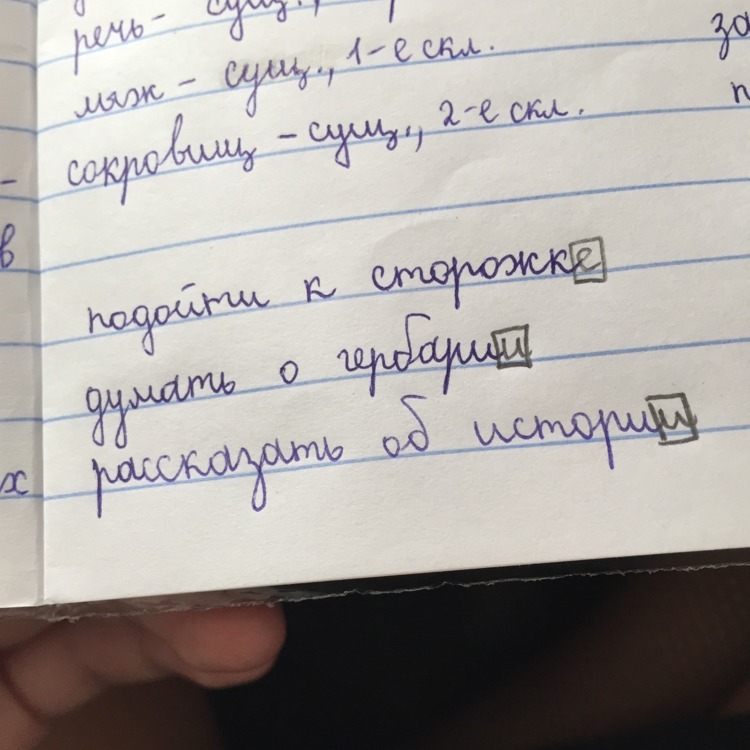 речь - сущ.,
мяж - сущ., 1-е скл.
сокровищ - сущ., 2-е скл.
за
п
в
подойти к сторожке
думать о гербарии
х
рассказать об истории